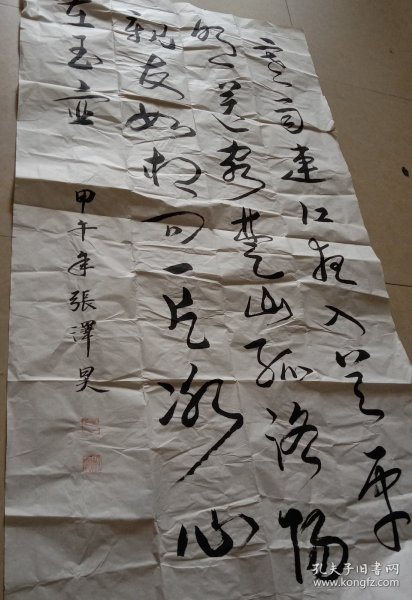 寒雨連江夜入吳平
明送客楚山孤洛陽
親友如相問一片冰心
在玉壺
甲午年張澤昊
孔夫子旧书网
www.kongfz.com